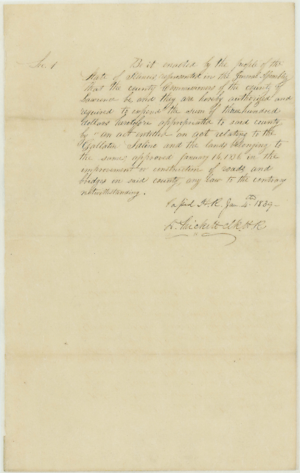 Sec 1 Be it enacted by the people of the
State of Illinois represented in the General Assembly
that the county Commissioners of the county of
be and they are hereby authorized and
required to expend the sum of
dollars heretofore appropriated to said county
by "an act entitled an act relating to the
Gallatin Salines and the lands belonging to
the same approved January 16, 1836 in the
improvement or construction of roads and
bridges in said county, any law to the contrary
notwithstanding.
Passed H. R. Jan 4th 1839
D. Prickett Clk H. R.